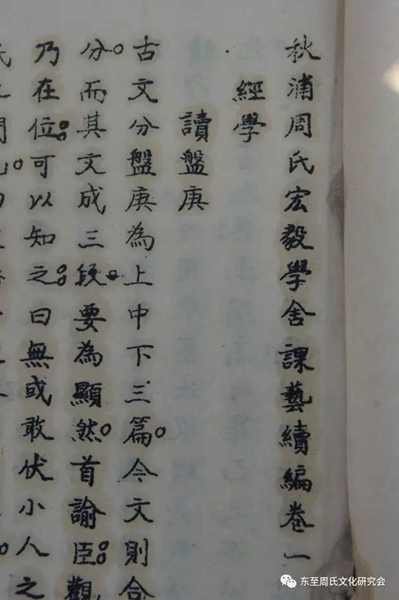 秋浦周氏宏毅學舍課藝續編卷一
經學
讀盤庚
古文分盤庚為上中下三篇。今文則合
分。而其文成三段。要為顯然。首諭臣。觀
乃在位。可以知之。曰無或敢伏小人之
东至周氏文化研究会